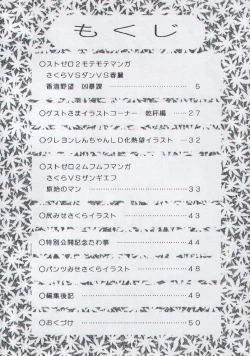 もくじ
〇ストゼロ２モテモテマンガ
さくらVSダンVS春麗
香港野望　凶暴課 ………… 5
〇ゲストさまイラストコーナー　乾杯編 … 27
〇クレヨンしんちゃんLD化熱望イラスト … 32
〇ストゼロ２ムフムフマンガ
さくらVSザンギエフ
原始のマン ………… 33
〇尻みせさくらイラスト ………… 43
〇特別公開記念たわ事 ………… 44
〇パンツみせさくらイラスト ………… 48
〇編集後記 ………… 49
〇おくづけ ………… 50